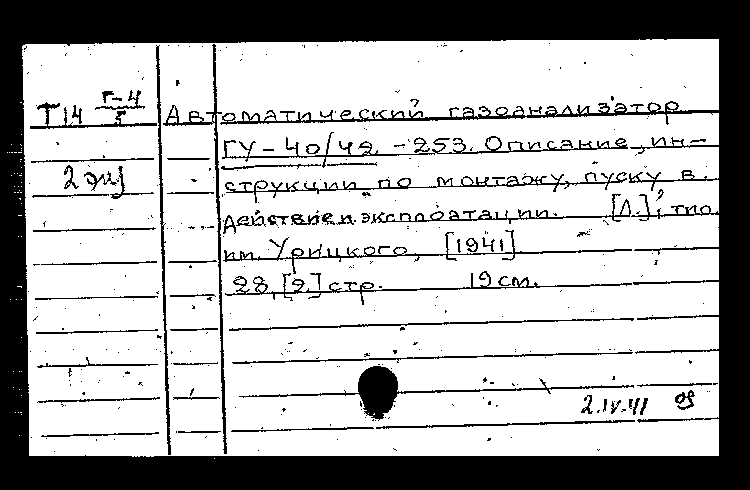 Т14 Г-4/5 Автоматический газоанализатор
ГУ-40/42 - 253. Описание, ин-
2 экз струкции по монтажу, пуску в
действие и эксплоатации. [Л.], тип.
им. Урицкого, [1941]
28, [2] стр. 19 см.
2.IV.41